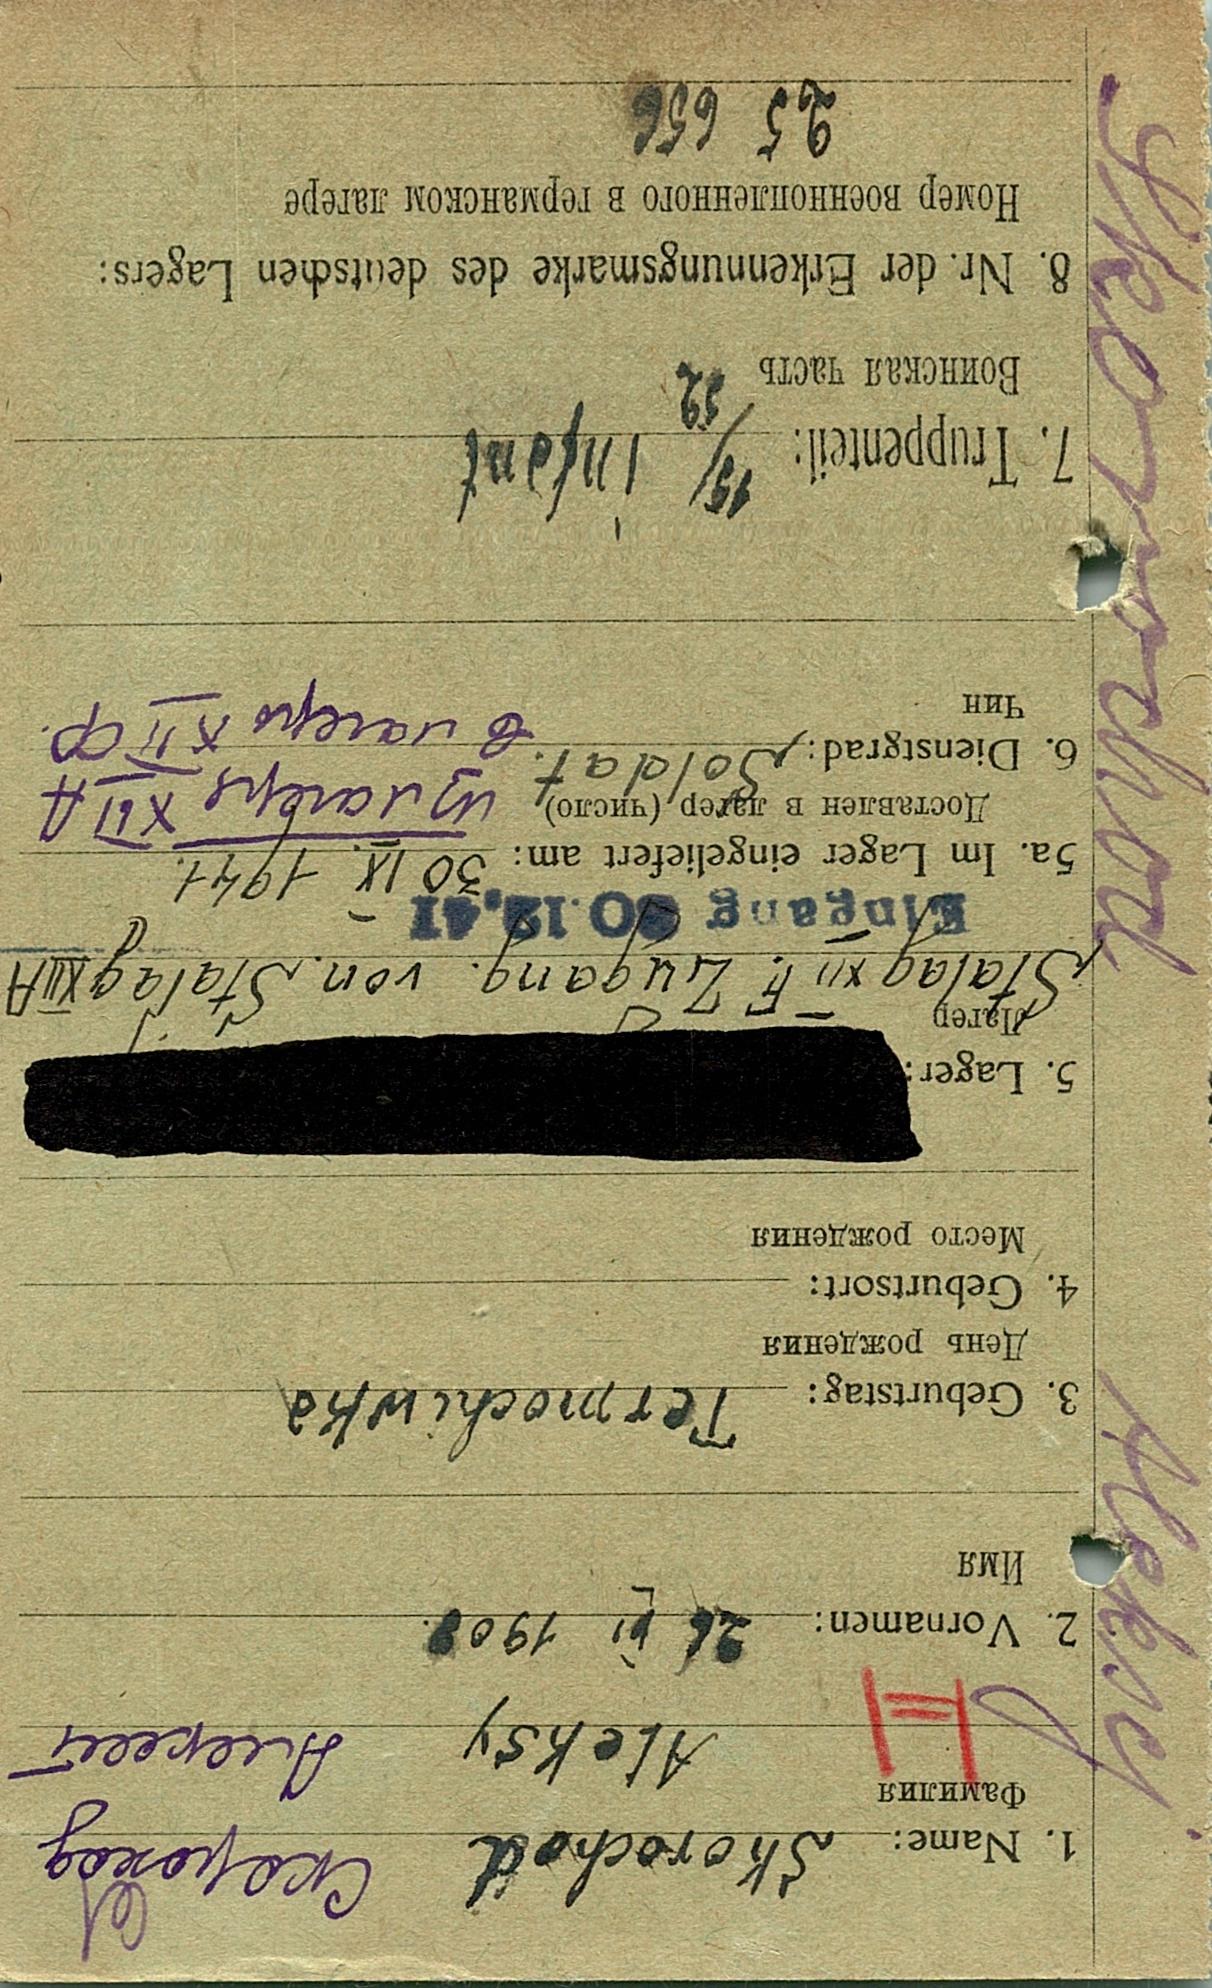 Skorochod Aleksej
1. Name: Skorochod Скороход
Фамилия
Aleksy Алексей
H
2. Vornamen: 26 VI 1908.
Имя
3. Geburtstag: Termochiwka
День рождения
4. Geburtsort:
Место рождения
5. Lager:
Лагерь
Stalag XII F. Zugang. von. Stalag XIII A
Eingang 30.12.41
5a. Im Lager eingeliefert am: 30 IX. 1941.
Доставлен в лагер (число) из лагеря XIII A
6. Dienstgrad: Soldat. в лагерь XII Ф.
Чин
7. Truppenteil: 15/32 infant
Воинская часть
8. Nr. der Erkennungsmarke des deutschen Lagers:
Номер военнопленного в германском лагере
25 656